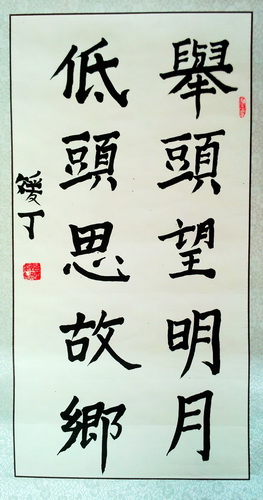 舉頭望明月
低頭思故鄉